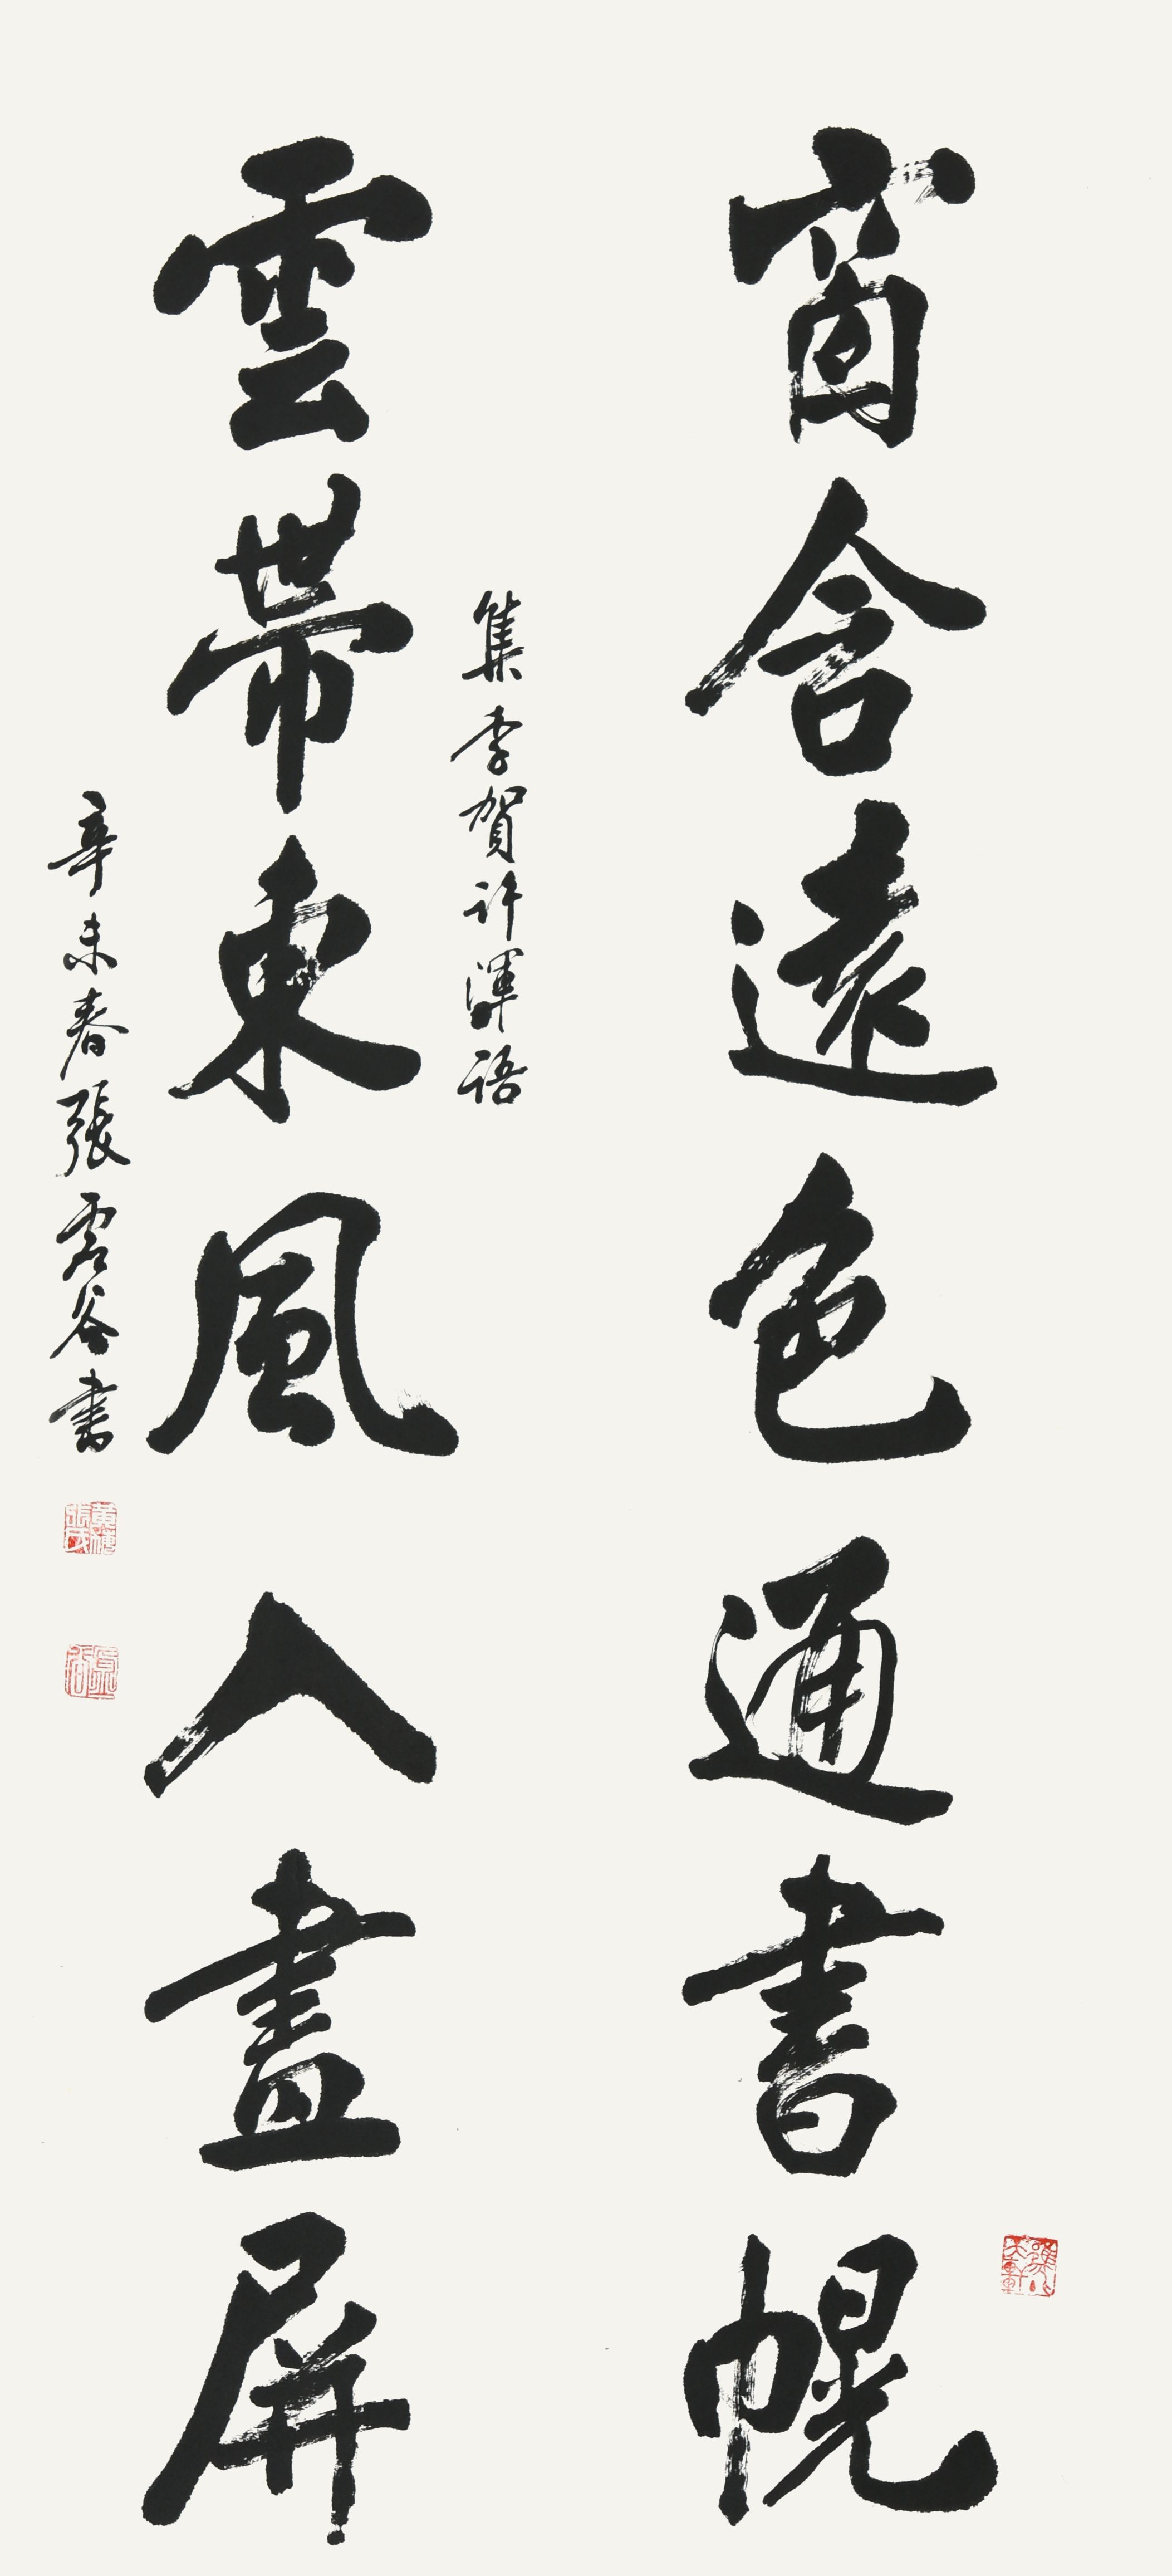 窗含遠色通書幌
雲帶東風入畫屏
集李賀許渾語
辛未春張谷書